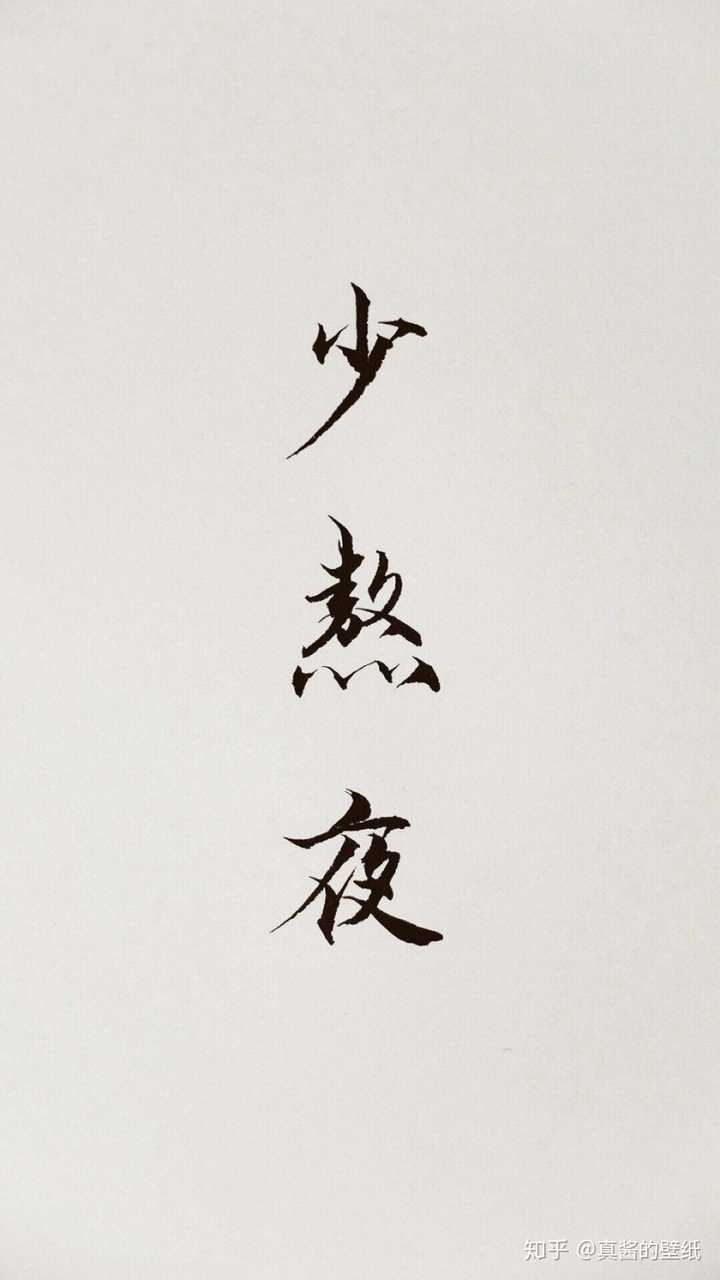 少熬夜
知乎 @真酱的壁纸